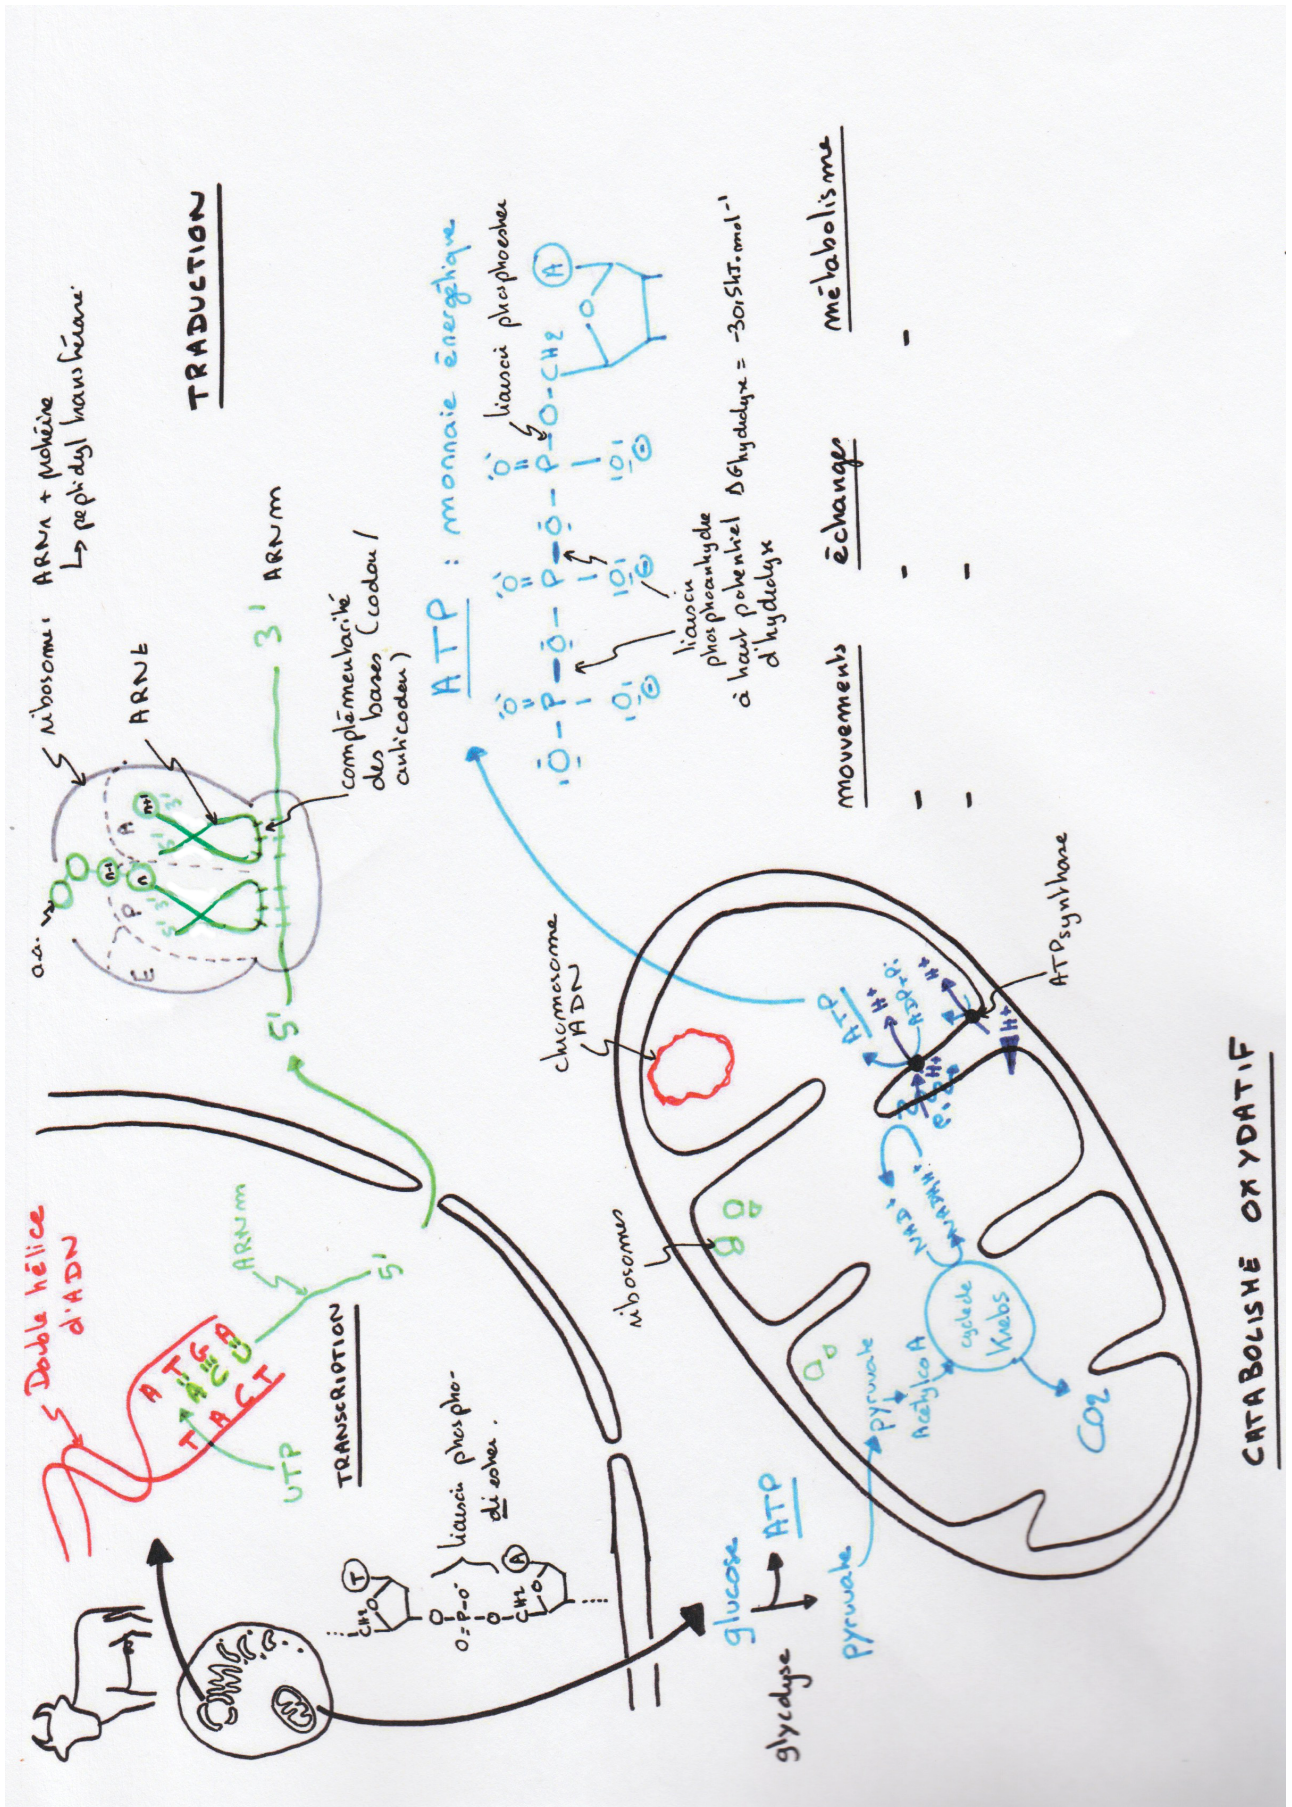 Double hélice
d'ADN
A T G A
A C U
T A C T
UTP
ARNm
5'
TRANSCRIPTION
T
CH2
O
O
O=P-O-
O
CH2
O
A
liaison phospho-
diester.
aa.
E
P
A
5'
3'
5'
3'
n-1
n
n+1
ribosome: ARNr + protéine
↳ peptidyl transférase
ARNt
5'
3'
ARNm
complémentarité
des bases (codon/
anticodon)
TRADUCTION
ATP : monnaie énergétique
O-P-O-P-O-P-O-CH2
O
A
liaison phosphoester
liaison
phosphoanhydre
à haut potentiel
d'hydrolyse
ΔGhydrolyse = -30,5kJ.mol-1
mouvements
échanges
métabolisme
-
-
-
-
-
glucose
glycolyse
ATP
pyruvate
pyruvate
Acétyl CoA
cycle de
Krebs
CO2
NAD+
NADH,H+
e-
H+
ATP
H+
ADP+Pi
H+
H+
ATPsynthase
ribosomes
chromosome
ADN
CATABOLISME OXYDATIF